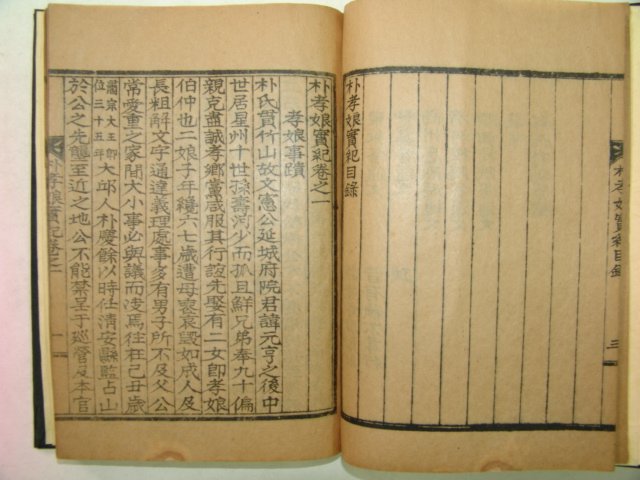 朴孝娘實紀目錄
朴孝娘實紀目錄
三
朴孝娘實紀卷之一
孝娘事蹟
朴氏貫竹山故文憲公延城府院君諱元亨之後中
世居星州十世孫壽河少而孤且鮮兄弟奉九十偏
親克盡誠孝鄉黨咸服其行誼先娶有二女卽孝娘
伯仲也二娘子年纔六七歲遭母喪哀毁如成人及
長粗解文字通達義理處事多有男子所不及父公
常愛重之家間大小事必與議而决焉往在己丑歲
肅宗大王卽
位三十五年
大邱人朴慶餘以時任淸安縣監占山
於公之先壟至近之地公不能禁呈于巡營及本官
朴孝娘實紀卷之一
一